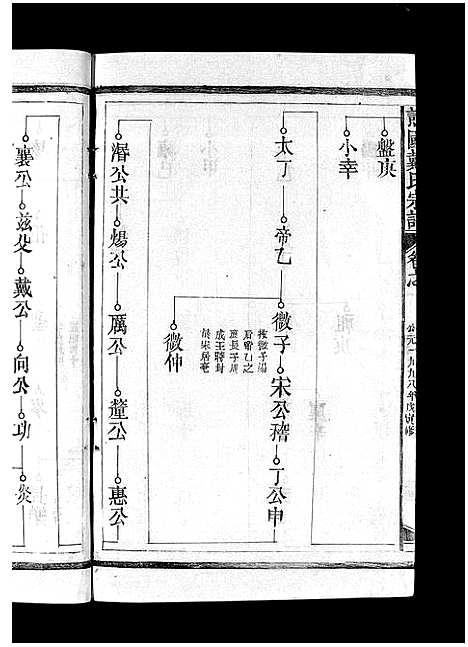 盤庚
小辛
太丁 帝乙 微子 宋公稽 丁公申
按微子爲
后帝乙之
長子周
成王時封
於宋居亳
微仲
湣公共 煬公 厲公 釐公 惠公
襄公 茲父 戴公 向公 功 炎
公元一九九八年戊寅修